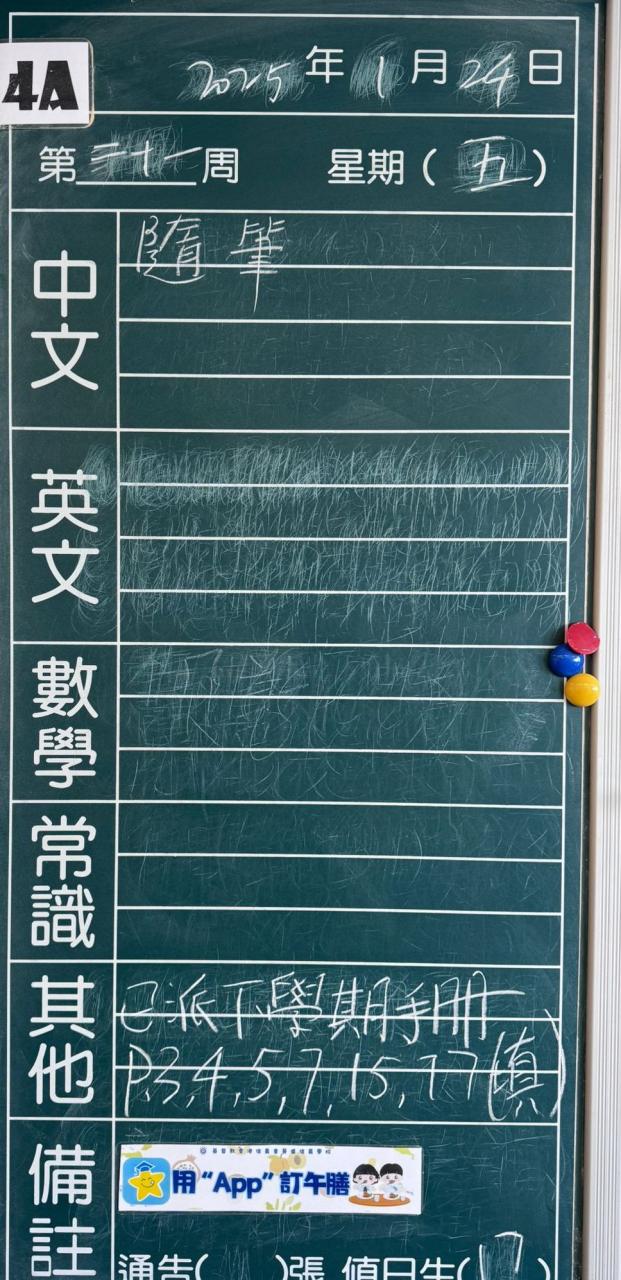 4A
2025年1月24日
第二十一周 星期(五)
中文
隨筆
英文
數學
常識
其他
已派下學期手冊
P.3,4,5,7,15,77(填)
備註
用“App”訂午膳
通告( )張 值日生(17)